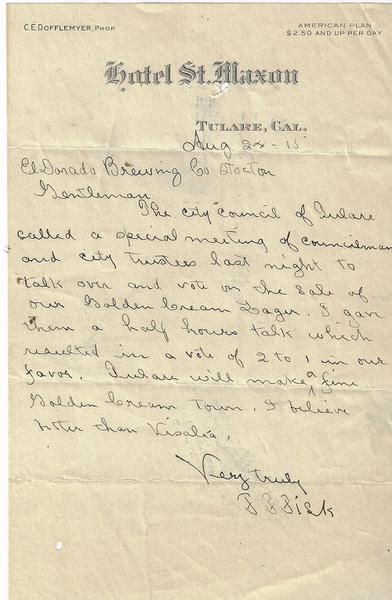 C.E. DOFFLEMYER, PROP.
AMERICAN PLAN
$2.50 AND UP PER DAY
Hotel St. Maxon
TULARE, CAL.
Aug 24 - 15
El Dorado Brewing Co Stocton
Gentleman
The city council of Tulare
called a special meeting of councilman
and city trustees last night to
talk over and vote on the sale of
our Golden Cream Lager. I gave
them a half hours talk which
resulted in a vote of 2 to 1 in our
favor. Tulare will make a fine
Golden Cream Town. I believe
hoter than Visalia.
Very truly
Fisk